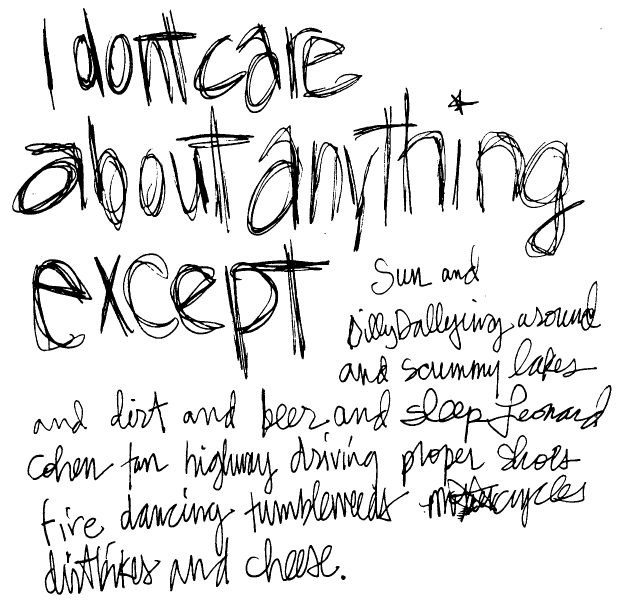 I dont care
about anything
except
Sun and
DillyDallying around
and scummy lakes
and dirt and beer and sleep Leonard
Cohen tan highway driving proper shoes
fire dancing tumbleweeds motorcycles
dirtbikes and cheese.